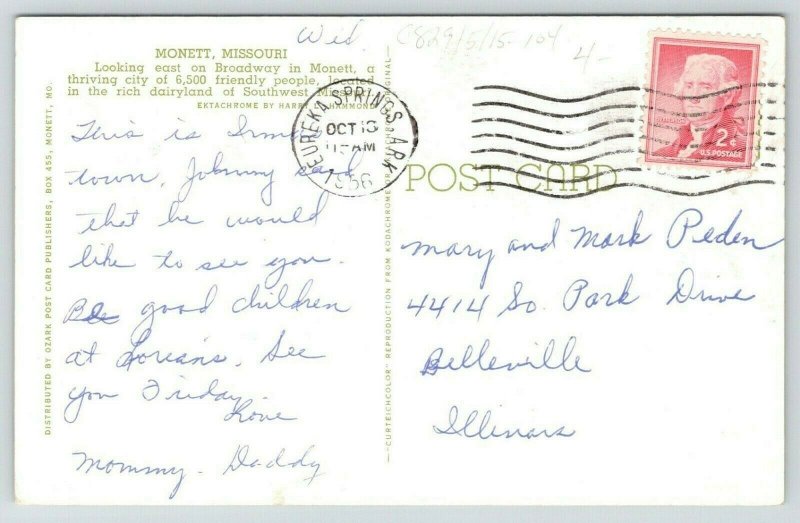 Wed.
C829/5/15-104
4-
MONETT, MISSOURI
Looking east on Broadway in Monett, a
thriving city of 6,500 friendly people, located
in the rich dairyland of Southwest Missouri.
EKTACHROME BY HARRY HAMMOND
This is Irmes
town, Johnny said
that he would
like to see you.
Be good children
at Loreans. See
you Friday.
Love
Mommy - Daddy
DISTRIBUTED BY OZARK POST CARD PUBLISHERS, BOX 455, MONETT, MO.
EUREKA SPRINGS, ARK
OCT
AM
1956
2¢
U.S. POSTAGE
POST CARD
"CURTEICHCOLOR" REPRODUCTION FROM KODACHROME OR ORIGINAL
Mary and Mark Peden
4414 So. Park Drive
Belleville
Illinois